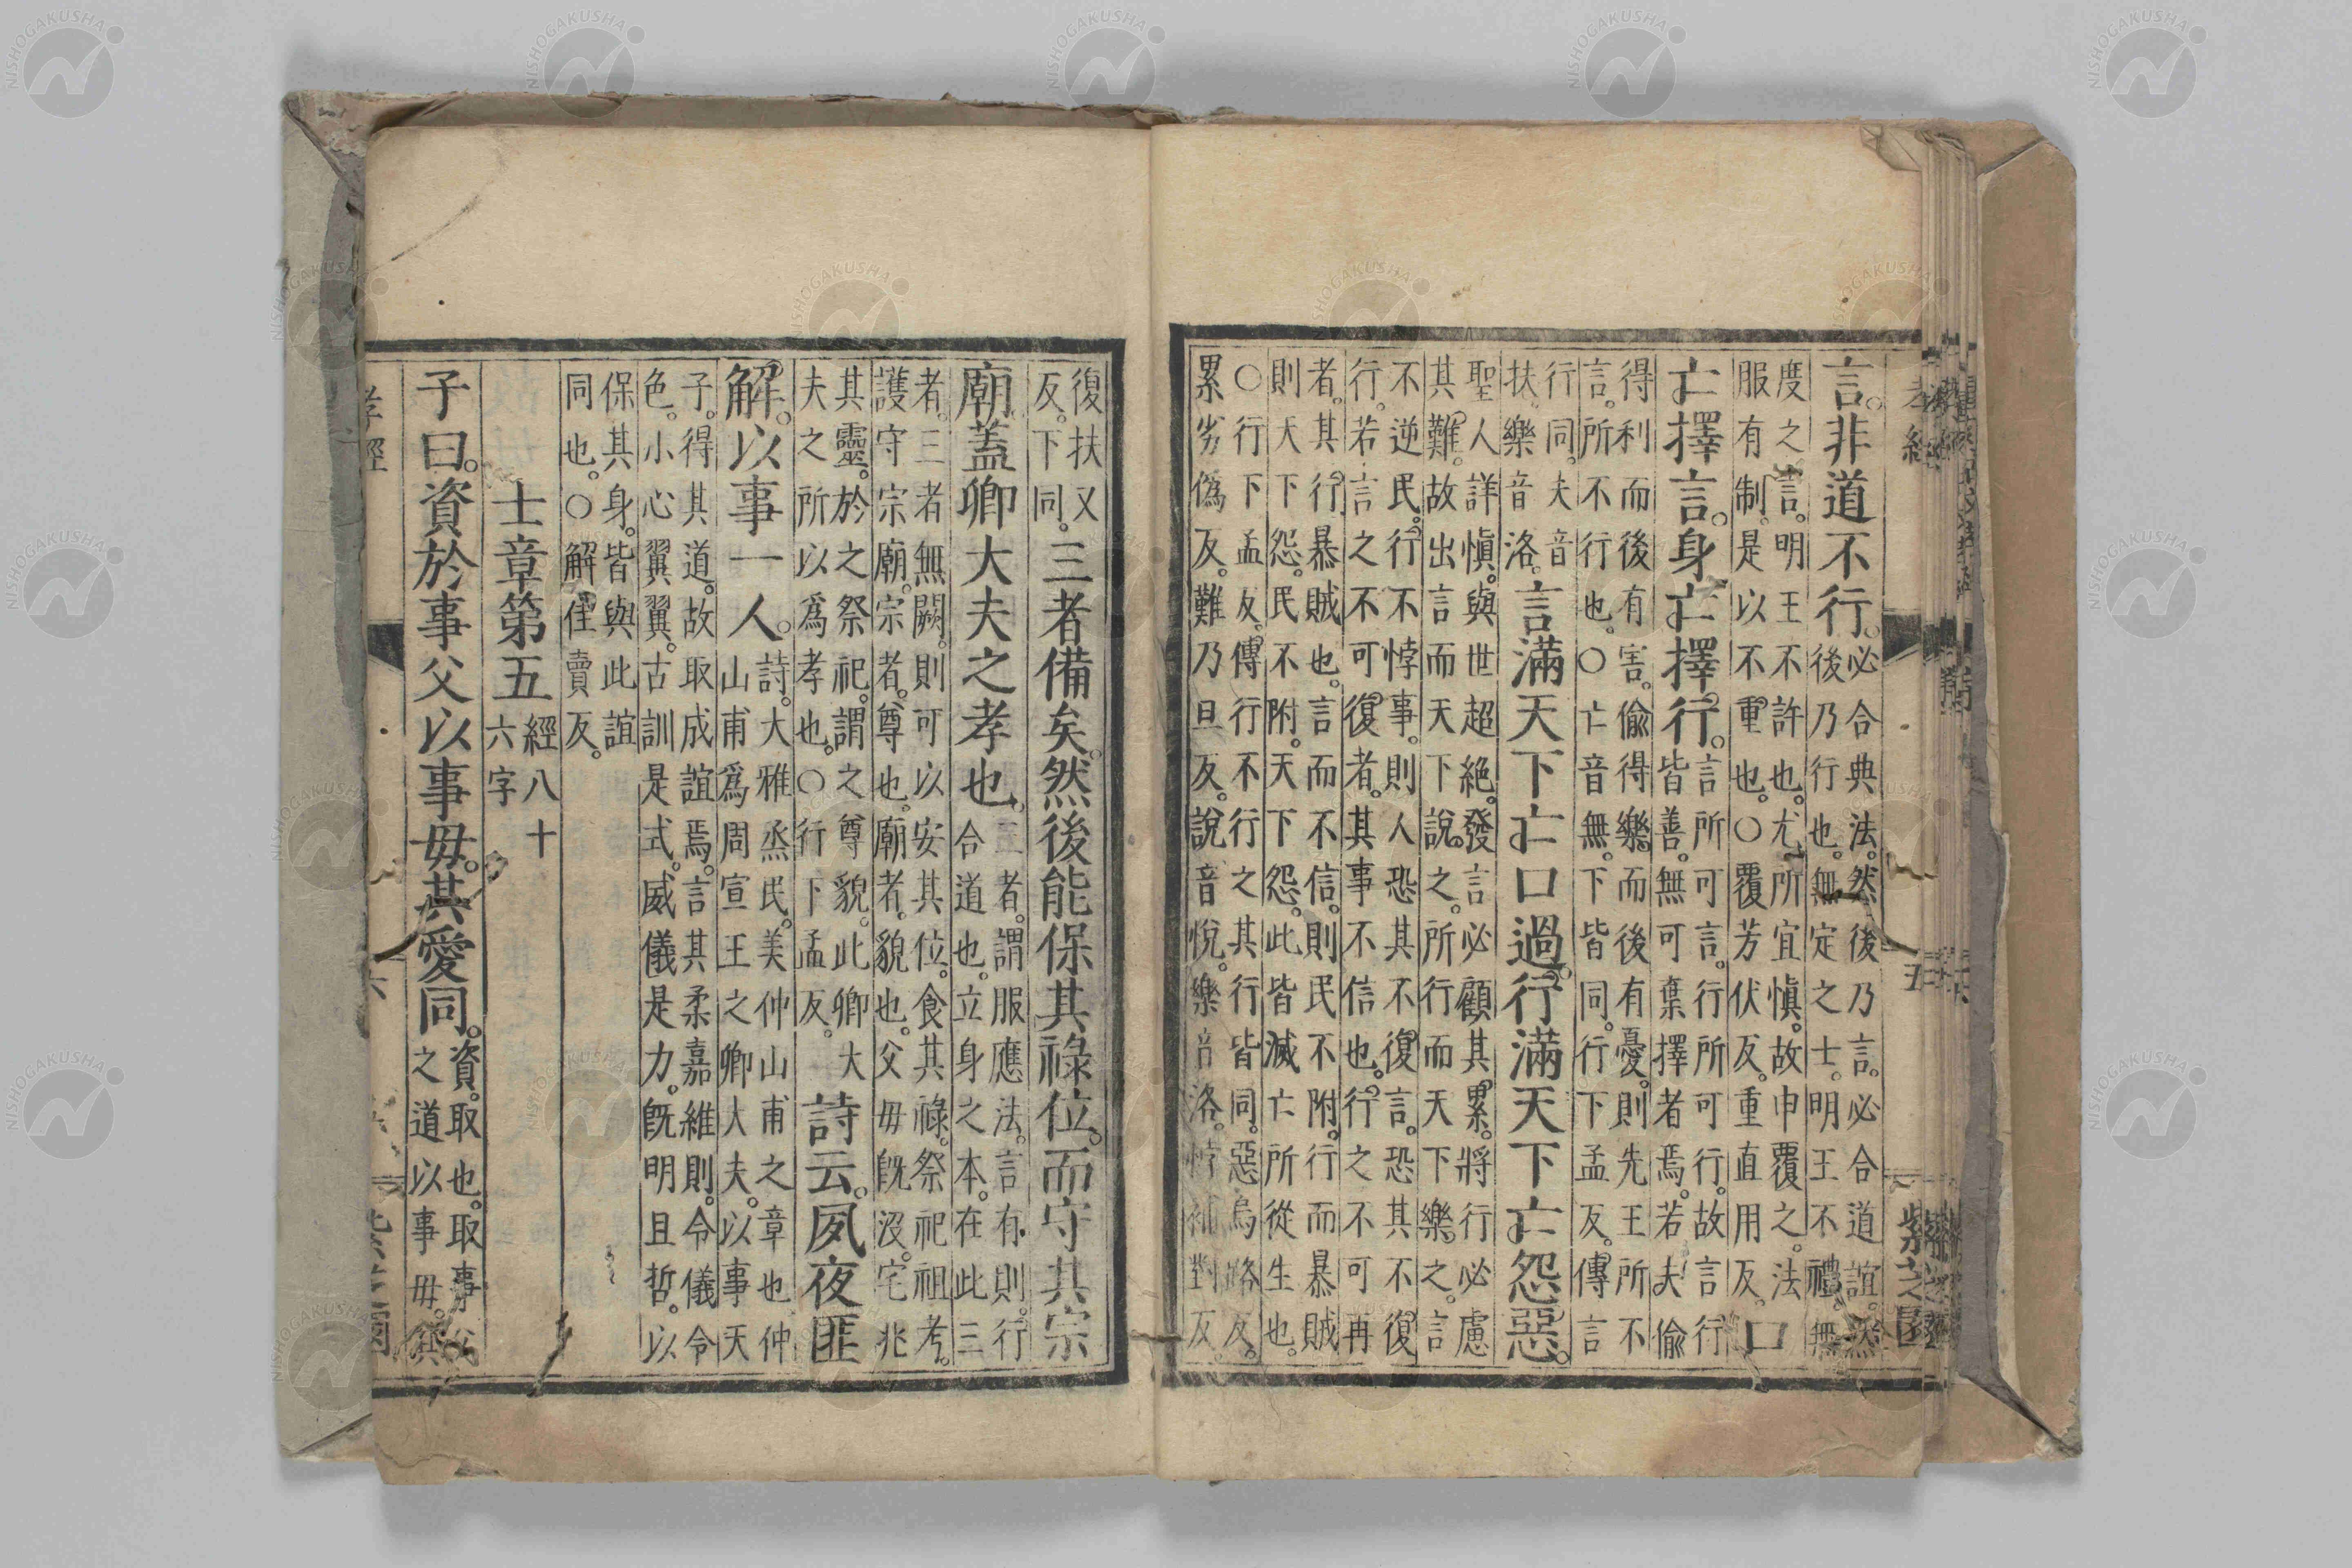 孝經
五
言。非道不行。
必合典法。然後乃言。必合道誼。然
後乃行也。無定之士。明王不禮。無
度之言。明王不許也。尤所宜愼。故申覆之。法
服有制。是以不重也。〇覆芳伏反。重直用反。
口
亡擇言。身亡擇行。
言所可言。行所可行。故言行
皆善。無可棄擇者焉。若夫偷
得利而後有害。偷得樂而後有憂。則先王所不
言。所不行也。〇亡音無。下皆同。行下孟反。傳言
行同。夫音
扶。樂音洛。
言滿天下亡口過。行滿天下亡怨惡。
聖人詳愼。與世超絶。發言必顧其累。將行必慮
其難。故出言而天下說之。所行而天下樂之。言
不逆民。行不悖事。則人恐其不復言。恐其不復
行。若言之不可復者。其事不信也。行之不可再
者。其行暴賊也。言而不信。則民不附。行而暴賊
則天下怨。民不附。天下怨。此皆滅亡所從生也。
〇行下孟反。傳行不行之其行皆同。惡烏路反。
累劣僞反。難乃旦反。說音悅。樂音洛。悖補對反。
復扶又
反。下同。
三者備矣。然後能保其祿位。而守其宗
廟。蓋卿大夫之孝也。
三者。謂服應法。言有則。行
合道也。立身之本。在此三
者。三者無闕。則可以安其位。食其祿。祭祀祖考。
護守宗廟。宗者。尊也。廟者。貌也。父母既沒。宅兆
其靈。於之祭祀。謂之尊貌。此卿大
夫之所以爲孝也。〇行下孟反。
詩云。夙夜匪
解。以事一人。
詩。大雅烝民。美仲山甫之章也仲
山甫爲周宣王之卿大夫。以事天
子。得其道。故取成誼焉。言其柔嘉維則。令儀令
色。小心翼翼。古訓是式。威儀是力。既明且哲。以
保其身。皆與此誼
同也。〇解佳賣反。
士章第五
經八十
六字
子曰。資於事父以事母。其愛同。
資。取也。取事父
之道以事母。其
孝經
六